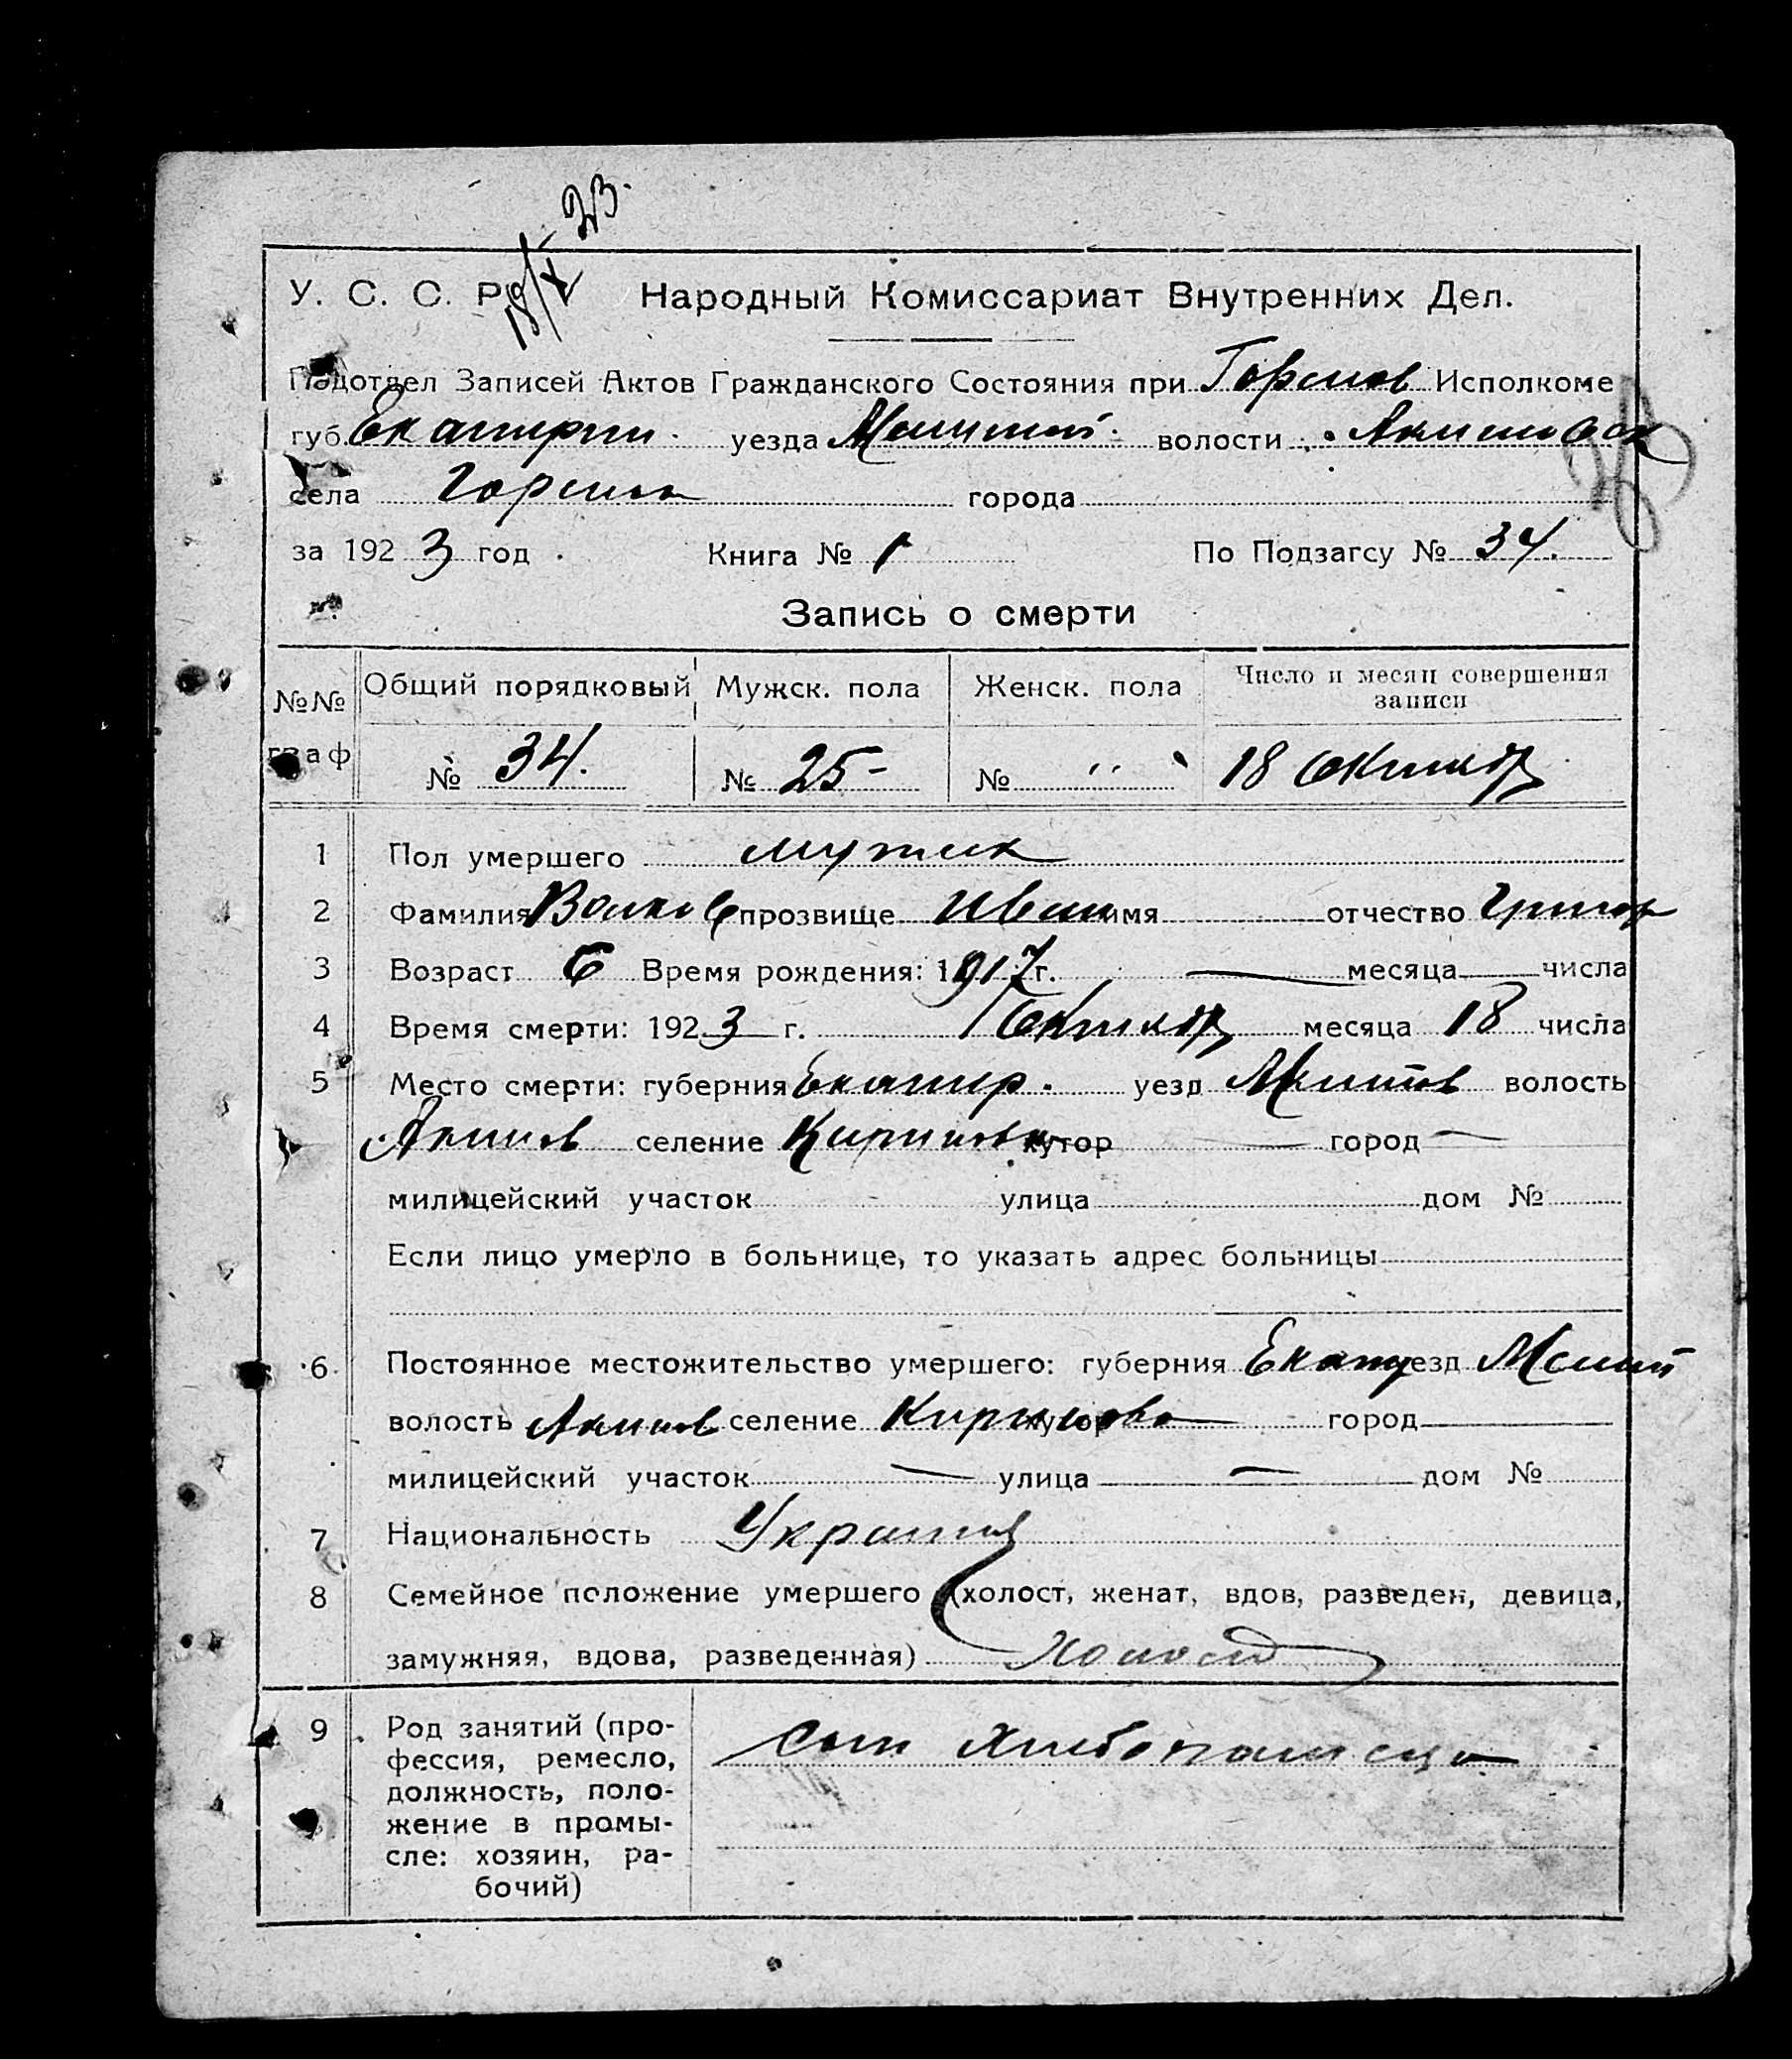 18/X 23.
У. С. С. Р. Народный Комиссариат Внутренних Дел.
Подотдел Записей Актов Гражданского Состояния при Исполкоме
губ. Екатерин. уезда волости Акимовск
села города
за 1923 год. Книга № 1 По Подзагсу № 34.
Запись о смерти
№№ граф Общий порядковый Мужск. пола Женск. пола Число и месяц совершения записи
№ 34. № 25- № " 18 Октябр
1 Пол умершего мужск
2 Фамилия Волков прозвище Иван имя отчество Григор
3 Возраст 6 Время рождения: 1917 г. — месяца — числа
4 Время смерти: 1923 г. Октябр месяца 18 числа
5 Место смерти: губерния Екатер. уезд Мелитоп волость
Акимов селение хутор — город —
милицейский участок улица дом №
Если лицо умерло в больнице, то указать адрес больницы
6 Постоянное местожительство умершего: губерния Екат уезд Мелит
волость Акимов селение хутор — город —
милицейский участок — улица — дом №
7 Национальность
8 Семейное положение умершего (холост, женат, вдов, разведен, девица,
замужняя, вдова, разведенная) Холост
9 Род занятий (про-
фессия, ремесло,
должность, поло-
жение в промы-
сле: хозяин, ра-
бочий)
сын хлебопашца